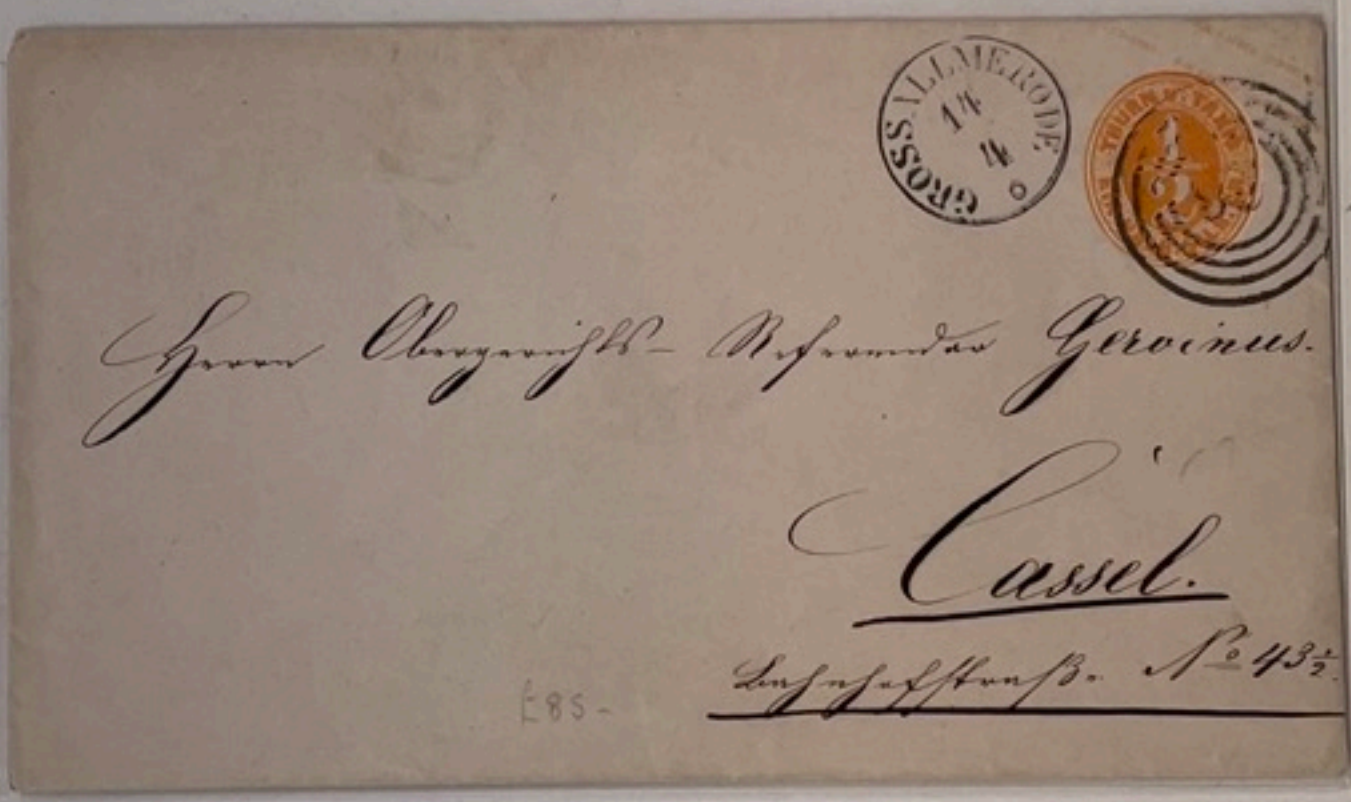 GROSSALLMERODE
14
4
THURN
1/2
Herrn Obergerichts-Referendar Gervinus.
Cassel.
Bahnhofstraß. No 43 1/2.
£85-